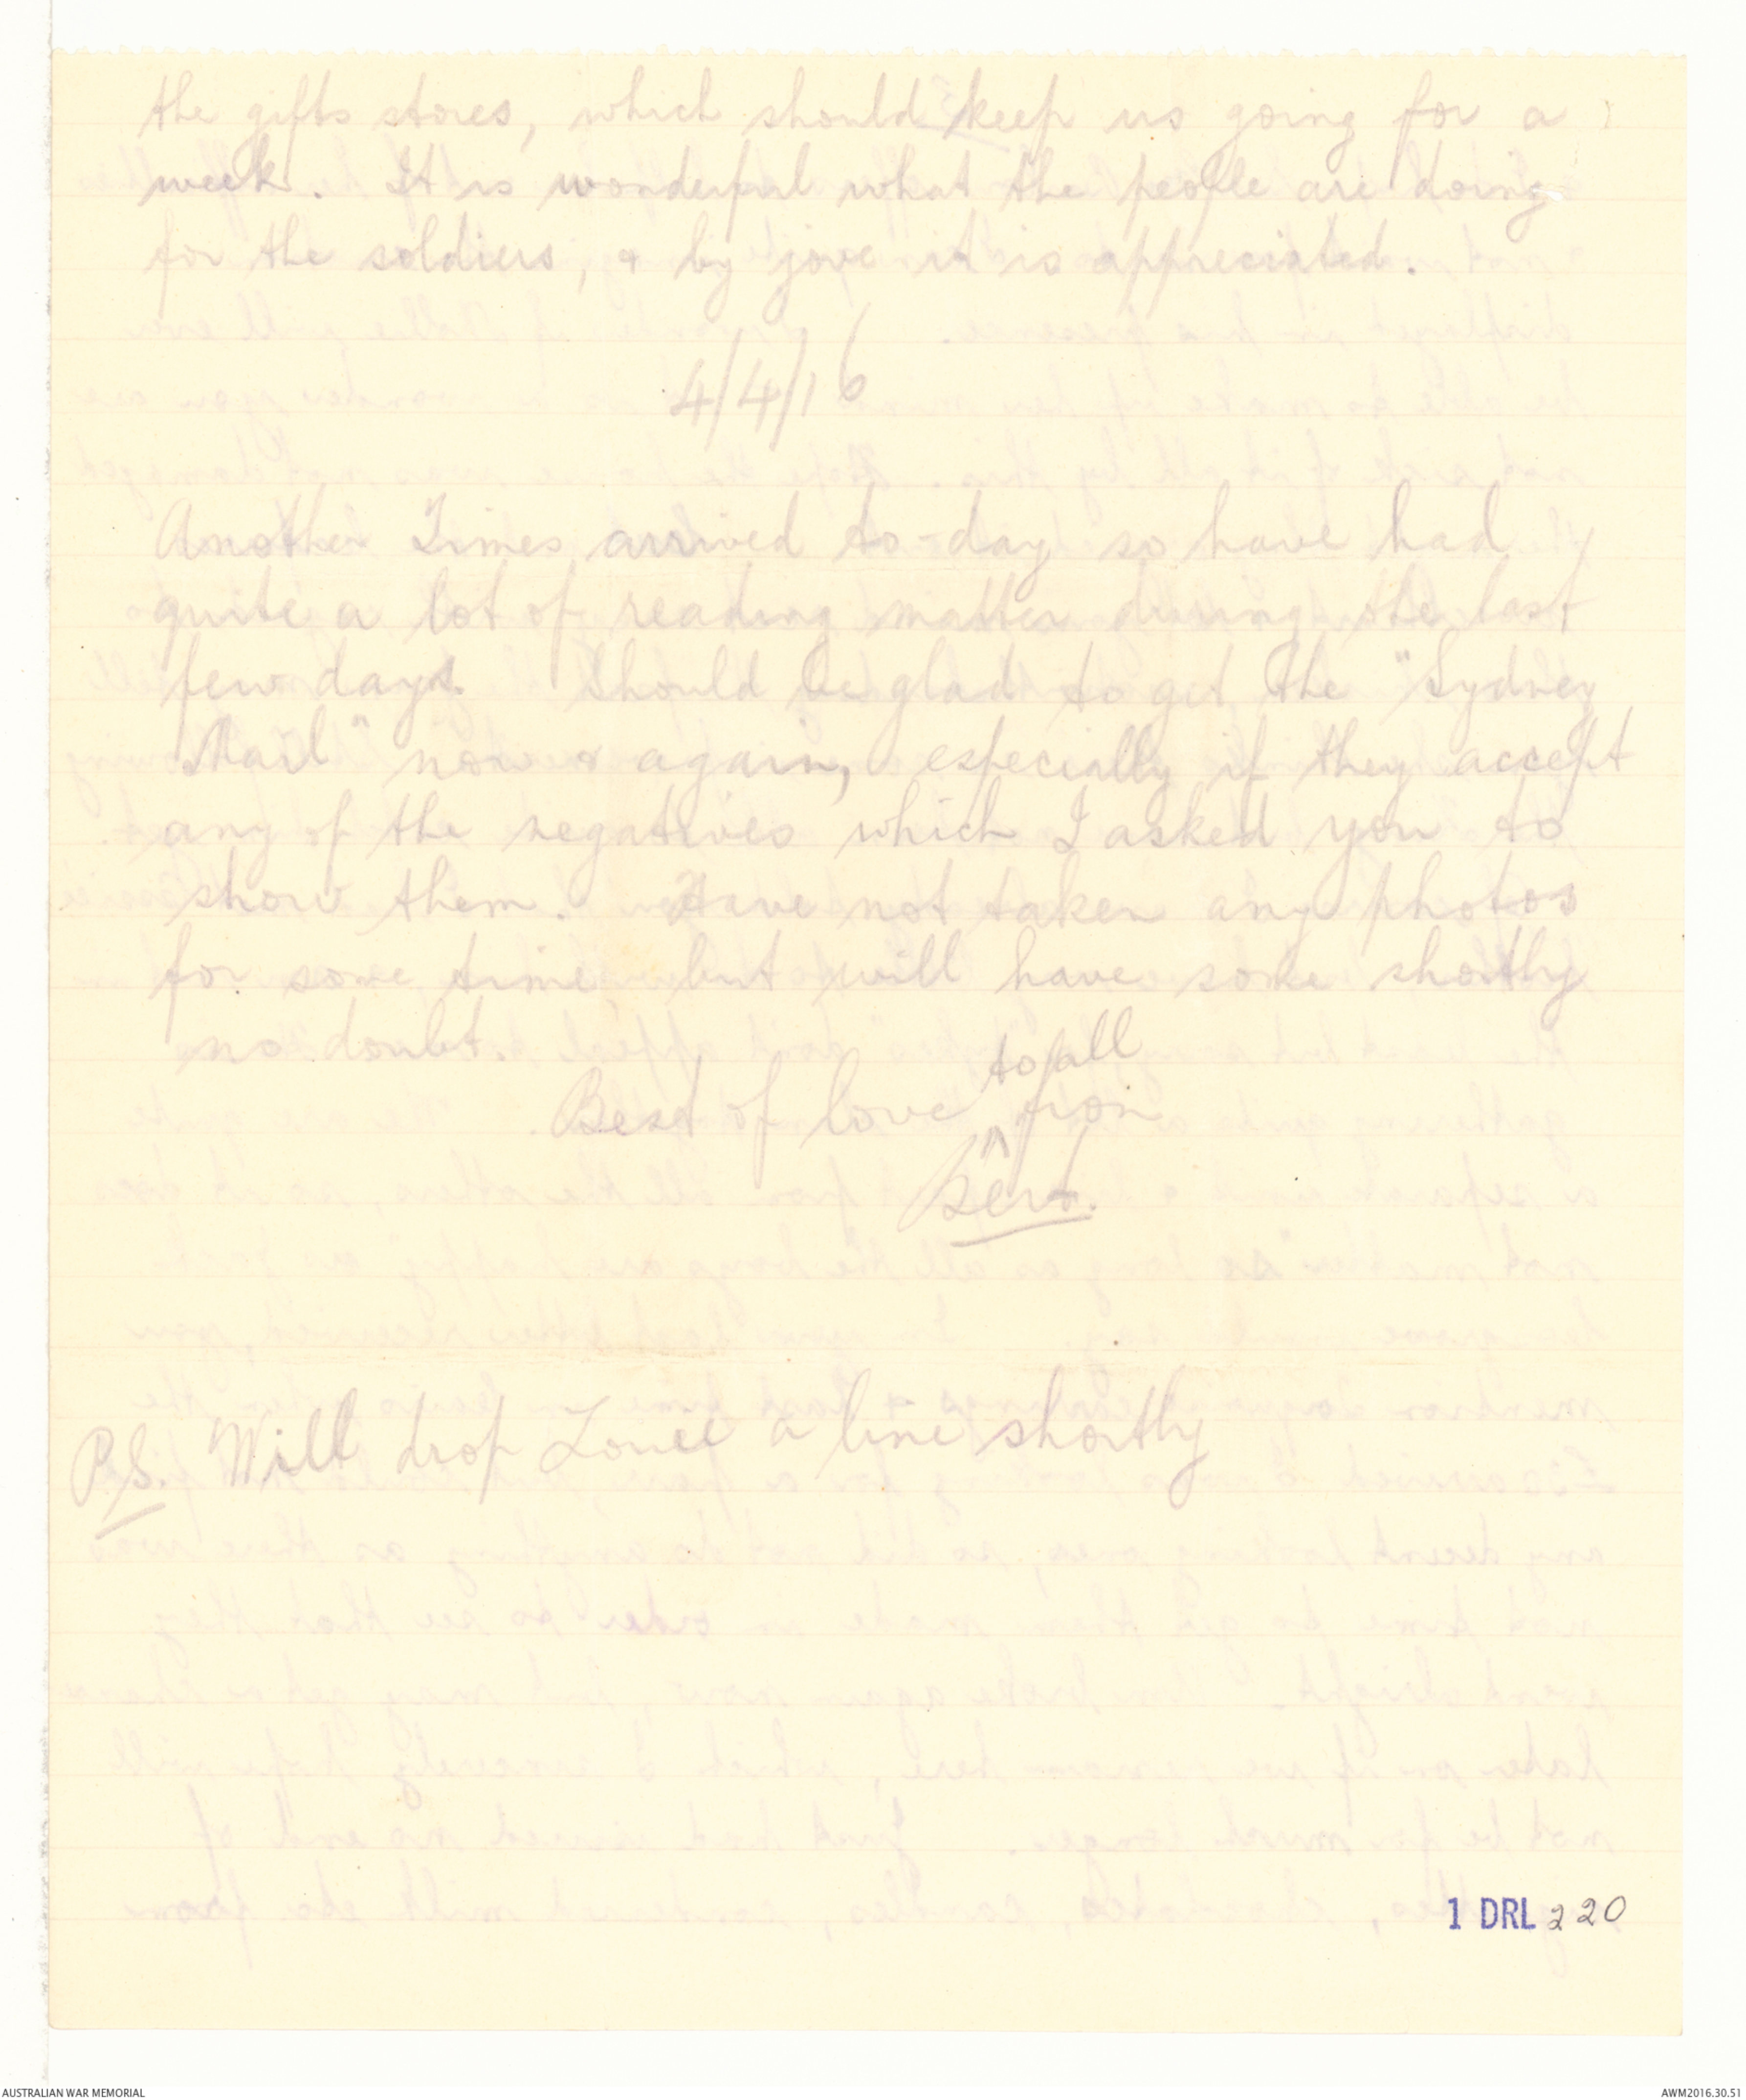 the gifts stores, which should keep us going for a
week. It is wonderful what the people are doing
for the soldiers, & by jove it is appreciated.
4/4/16
Another Times arrived to-day so have had
quite a lot of reading matter during the last
few days. Should be glad to get the "Sydney
Mail" now & again, especially if they accept
any of the negatives which I asked you to
show them. Have not taken any photos
for some time but will have some shortly
no doubt.
to all
Best of love ^ from
Bert.
P.S. Will drop a line shortly
1 DRL 220
AUSTRALIAN WAR MEMORIAL
AWM2016.30.51